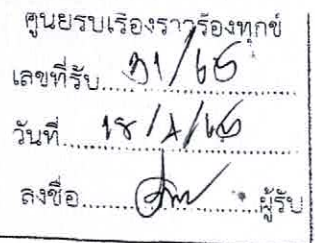 ศูนยรบเรื่องราวร้องทุกข์
เลขที่รับ 31/65
วันที่ 18/
ลงชื่อ.....................ผู้รับ